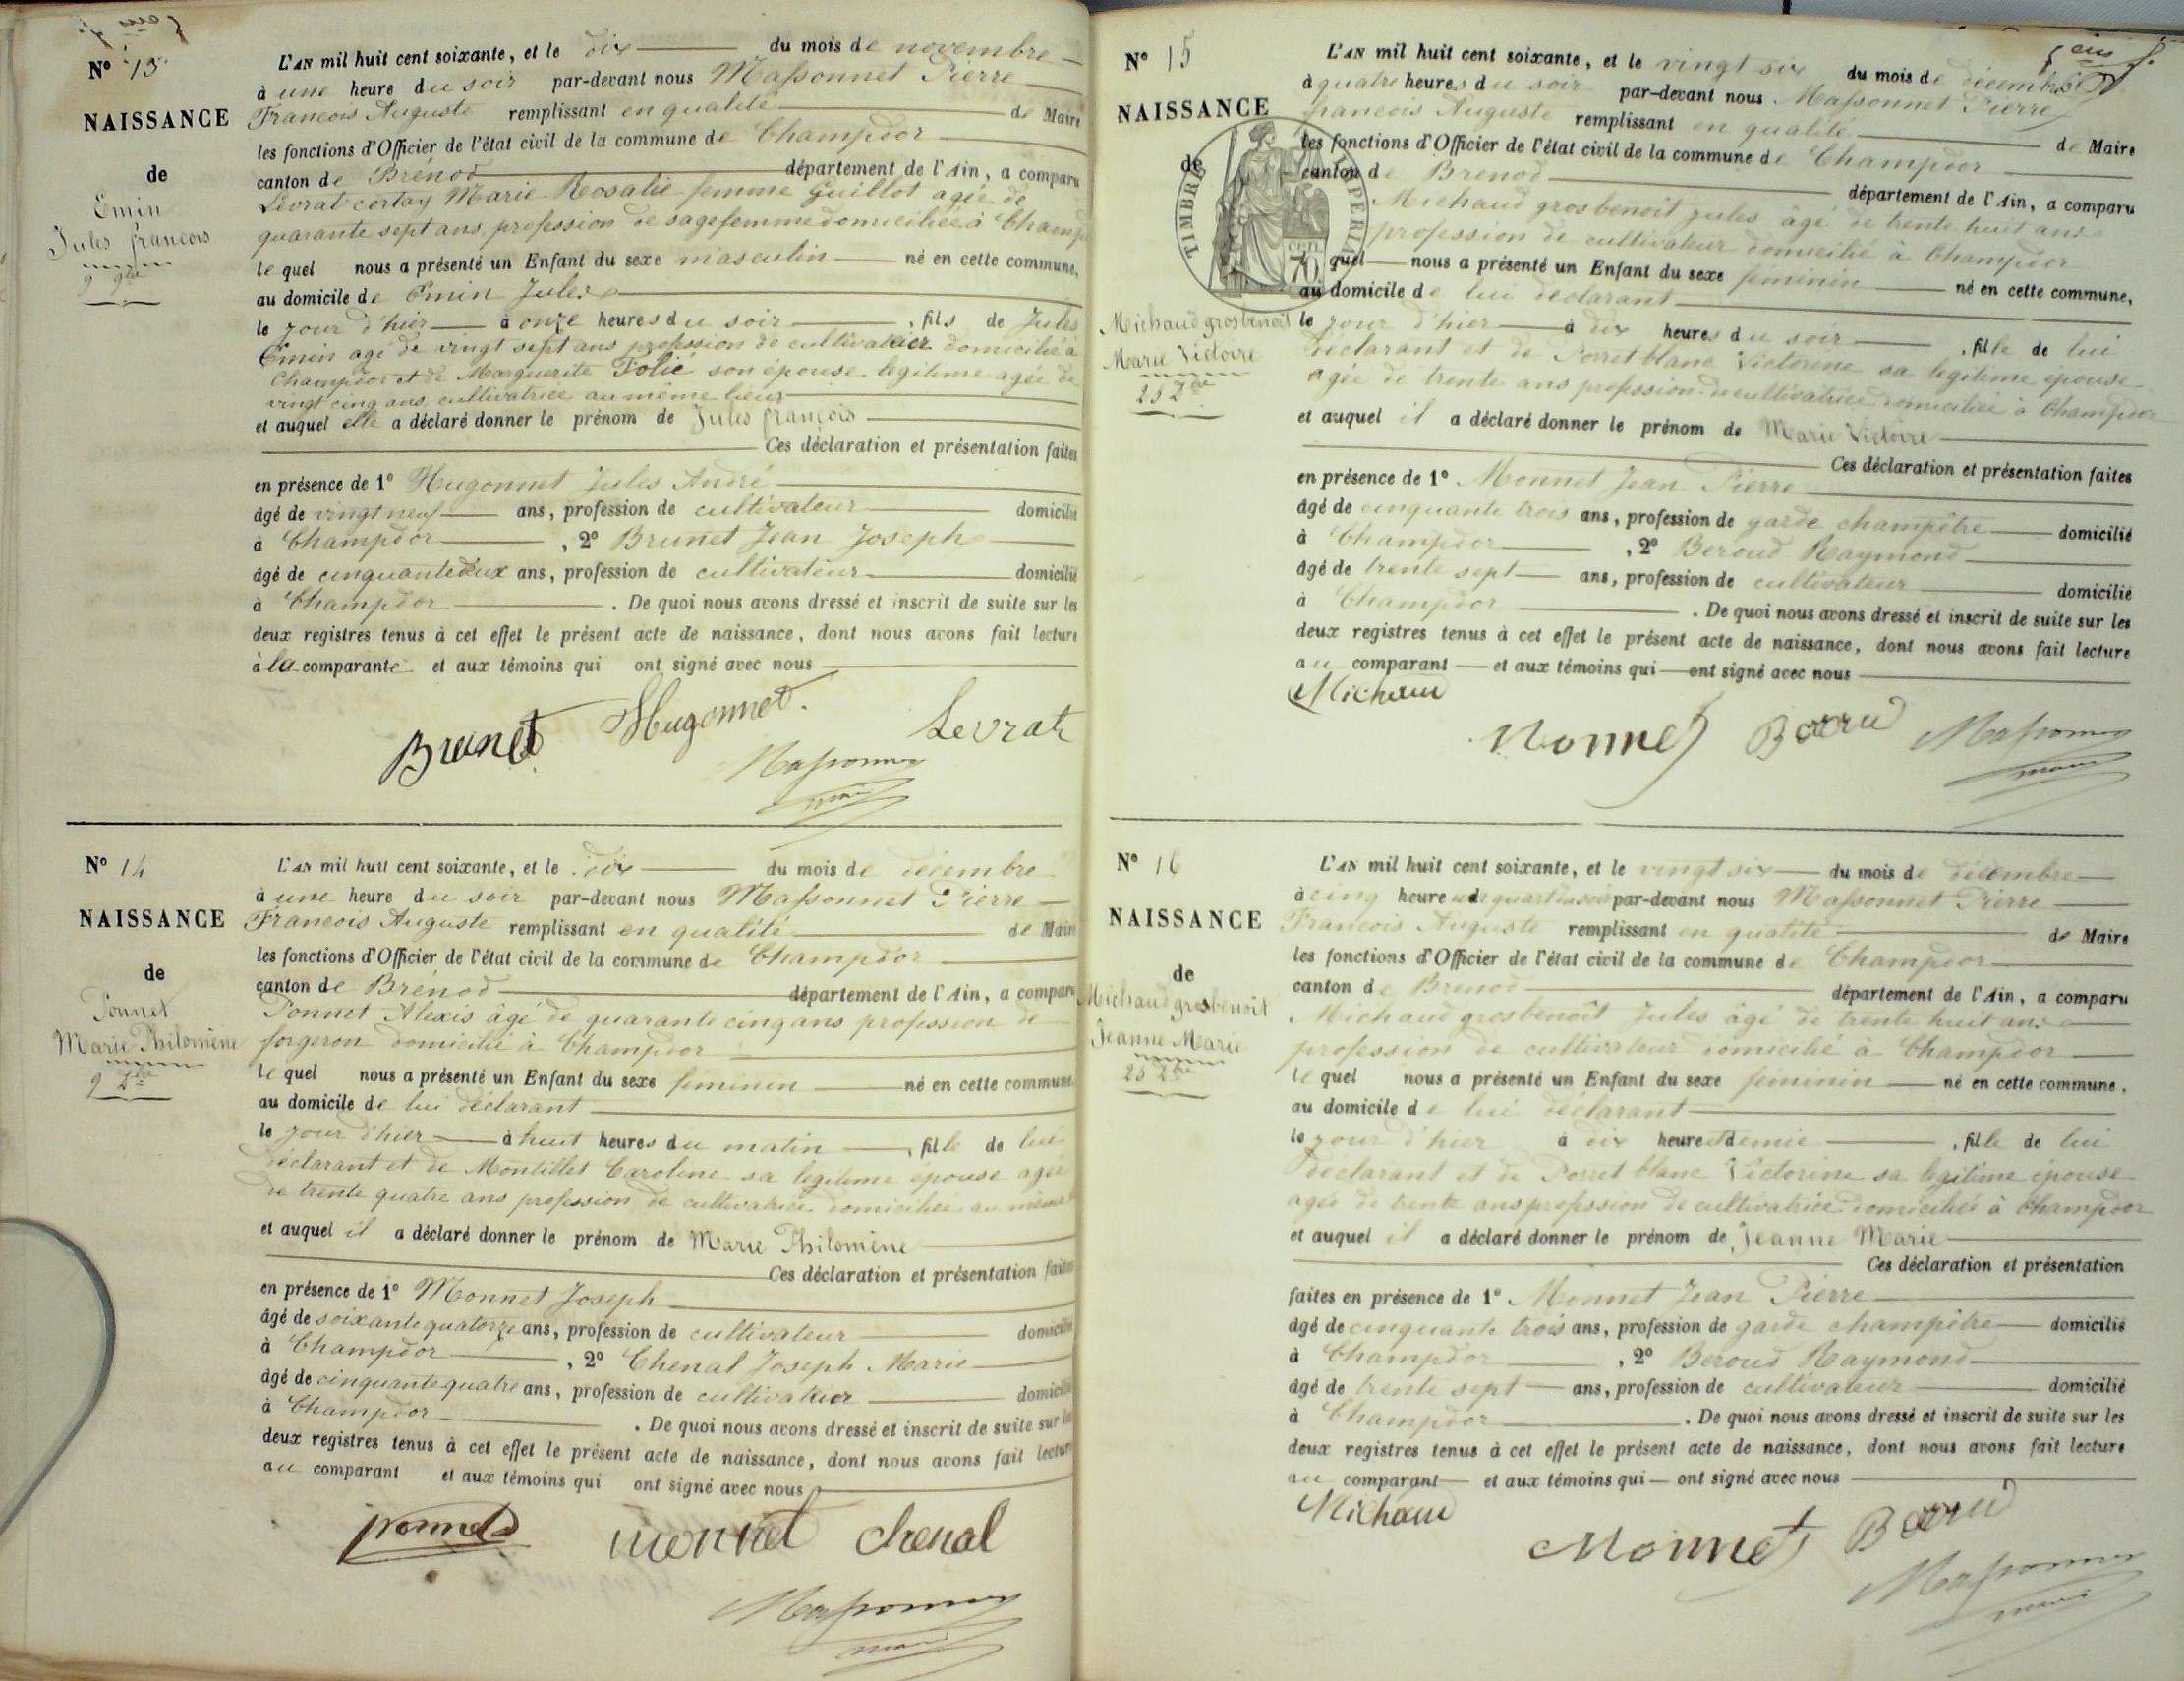 N° 13
NAISSANCE
de
Emin
Jules francois
9 9bre
L'AN mil huit cent soixante, et le dix du mois de novembre
à une heure du soir par-devant nous Massonnet Pierre
Francois Auguste remplissant en qualité de Maire
les fonctions d'Officier de l'état civil de la commune de Champdor
canton de Brénod département de l'Ain, a comparu
Levrat cortay Marie Rosalie femme Guillot agée de
quarante sept ans, profession de sage femme domiciliée à Champ
le quel nous a présenté un Enfant du sexe masculin né en cette commune,
au domicile de Emin Jules
le jour d'hier à onze heures du soir, fils de Jules
Emin agé de vingt sept ans profession de cultivateur domicilié à
Champdor et de Marguerite Folié son épouse legitime agée de
vingt cinq ans cultivatrice au même lieu
et auquel elle a déclaré donner le prénom de Jules françois
Ces déclaration et présentation faites
en présence de 1° Hugonnet Jules André
âgé de vingt neuf ans, profession de cultivateur domicilié
à Champdor, 2° Brunet Jean Joseph
âgé de cinquante deux ans, profession de cultivateur domicilié
à Champdor. De quoi nous avons dressé et inscrit de suite sur les
deux registres tenus à cet effet le présent acte de naissance, dont nous avons fait lecture
à la comparante et aux témoins qui ont signé avec nous
Brunet Hugonnet Levrat
Massonnet
maire
N° 14
NAISSANCE
de
Ponnet
Marie Philomène
9 Xbre
L'AN mil huit cent soixante, et le dix du mois de décembre
à une heure du soir par-devant nous Massonnet Pierre
Francois Auguste remplissant en qualité de Maire
les fonctions d'Officier de l'état civil de la commune de Champdor
canton de Brénod département de l'Ain, a comparu
Ponnet Alexis âgé de quarante cinq ans profession de
forgeron domicilié à Champdor
le quel nous a présenté un Enfant du sexe féminin né en cette commune
au domicile de lui déclarant
le jour d'hier à huit heures du matin, fille de lui
déclarant et de Montillet Caroline sa legitime épouse agée
de trente quatre ans profession de cultivatrice domiciliée au même
et auquel il a déclaré donner le prénom de Marie Philomène
Ces déclaration et présentation faites
en présence de 1° Monnet Joseph
âgé de soixante quatorze ans, profession de cultivateur domicilié
à Champdor, 2° Chenal Joseph Marie
âgé de cinquante quatre ans, profession de cultivateur domicilié
à Champdor. De quoi nous avons dressé et inscrit de suite sur les
deux registres tenus à cet effet le présent acte de naissance, dont nous avons fait lecture
au comparant et aux témoins qui ont signé avec nous
ponnet monnet chenal
Massonnet
maire
N° 15
NAISSANCE
de
TIMBRE IMPERIAL
70 cen
Michaud grosbenoit
Marie Victoire
25 Xbre
L'AN mil huit cent soixante, et le vingt six du mois de décembre
à quatre heures du soir par-devant nous Massonnet Pierre
francois Auguste remplissant en qualité de Maire
les fonctions d'Officier de l'état civil de la commune de Champdor
canton de Brenod département de l'Ain, a comparu
Michaud grosbenoît Jules âgé de trente huit ans
profession de cultivateur domicilié à Champdor
le quel nous a présenté un Enfant du sexe féminin né en cette commune,
au domicile de lui déclarant
le jour d'hier à dix heures du soir, fille de lui
déclarant et de Porret blanc Victorine sa legitime épouse
agée de trente ans profession de cultivatrice domiciliée à Champdor
et auquel il a déclaré donner le prénom de Marie Victoire
Ces déclaration et présentation faites
en présence de 1° Monnet Jean Pierre
âgé de cinquante trois ans, profession de garde champêtre domicilié
à Champdor, 2° Beroud Raymond
âgé de trente sept ans, profession de cultivateur domicilié
à Champdor. De quoi nous avons dressé et inscrit de suite sur les
deux registres tenus à cet effet le présent acte de naissance, dont nous avons fait lecture
au comparant et aux témoins qui ont signé avec nous
Michaud
Monnet Beroud Massonnet
maire
N° 16
NAISSANCE
de
Michaud grosbenoît
Jeanne Marie
25 Xbre
L'AN mil huit cent soixante, et le vingt six du mois de décembre
à cinq heure un quart du soir par-devant nous Massonnet Pierre
Francois Auguste remplissant en qualité de Maire
les fonctions d'Officier de l'état civil de la commune de Champdor
canton de Brenod département de l'Ain, a comparu
Michaud grosbenoît Jules âgé de trente huit ans
profession de cultivateur domicilié à Champdor
le quel nous a présenté un Enfant du sexe féminin né en cette commune,
au domicile de lui déclarant
le jour d'hier à dix heures demie, fille de lui
déclarant et de Porret blanc Victorine sa legitime épouse
agée de trente ans profession de cultivatrice domiciliée à Champdor
et auquel il a déclaré donner le prénom de Jeanne Marie
Ces déclaration et présentation
faites en présence de 1° Monnet Jean Pierre
âgé de cinquante trois ans, profession de garde champêtre domicilié
à Champdor, 2° Beroud Raymond
âgé de trente sept ans, profession de cultivateur domicilié
à Champdor. De quoi nous avons dressé et inscrit de suite sur les
deux registres tenus à cet effet le présent acte de naissance, dont nous avons fait lecture
au comparant et aux témoins qui ont signé avec nous
Michaud
Monnet Beroud
Massonnet
maire